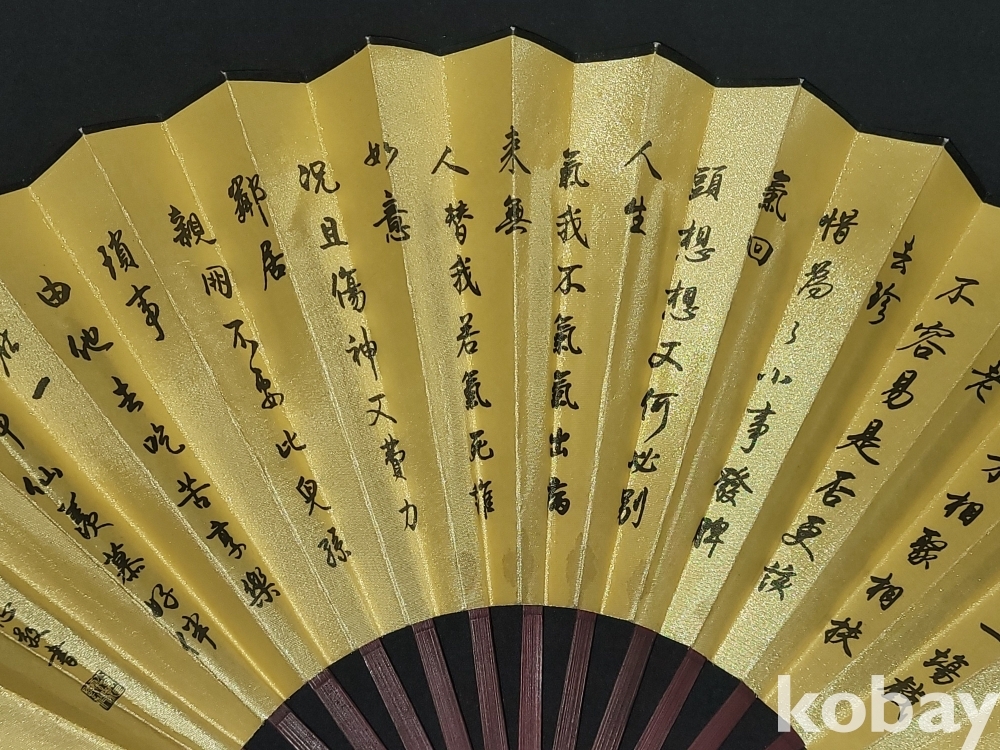 一場戲
老
才相聚相扶
不容易是否更該
去珍
惜為了小事發脾
氣回
頭想想又何必別
人生
氣我不氣氣出病
來無
人替我若氣死誰
如意
況且傷神又費力
鄰居
親朋不要比兒孫
瑣事
由他去吃苦享樂
在一
神仙羨慕好伴
書
kobay